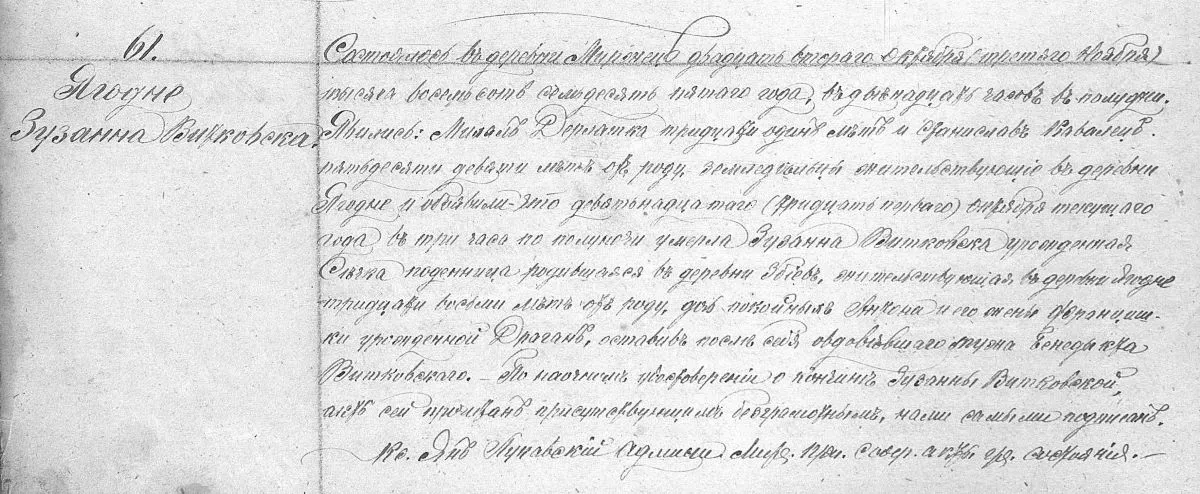 61.
Ягодне
Зузанна Витковска.
Состоялось въ деревни Мирженъ двадцать втораго Октября (третяго Ноября)
тысяча восемьсотъ семьдесятъ пятаго года, въ двѣнадцать часовъ въ полудни.
Явились: Михалъ Дерлатка тридцати одинъ лѣтъ и Станиславъ Ковалецъ
пятьдесяти девяти лѣтъ отъ роду, земледѣльцы жительствующіе въ деревни
Ягодне и объявили что девятьнадцатаго (тридцать перваго) Октября текущаго
года, въ три часа по полуночи умерла Зузанна Витковска урожденная
поденница родившаяся въ деревни жительствующая въ деревни Ягодне
тридцати восьми лѣтъ отъ роду, дочь покойныхъ Антона и его жены Францишки
ки урожденной Драганъ, оставивъ послѣ себя овдовѣвшаго мужа Бенедыкта
Витковскаго. — По наочномъ удостовереніи о кончинѣ Зузанны Витковской,
актъ сей прочитанъ присутствующимъ безграмотнымъ, нами самыми подписанъ.
Кс. Янъ Админи. Мирж. При. Содер. акты гр. состоянія. —